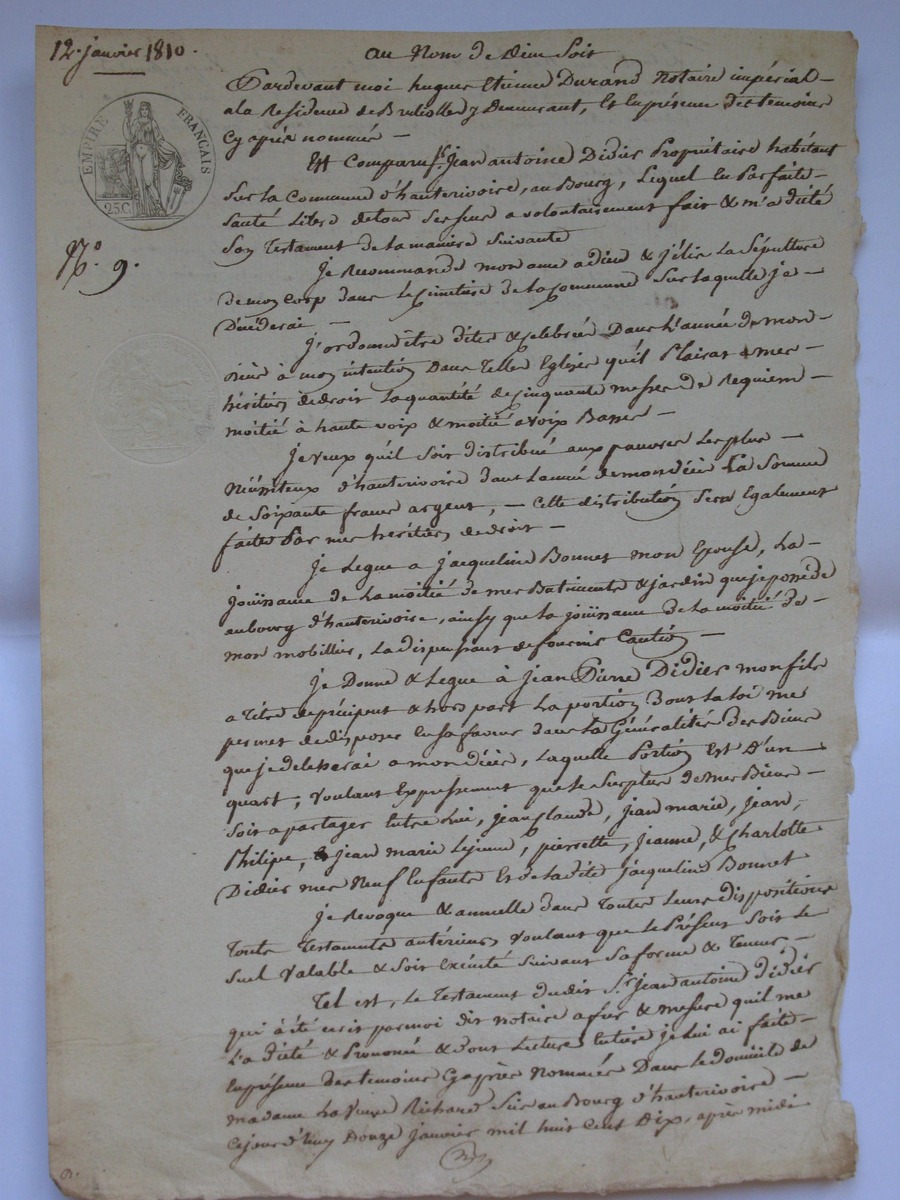 12. janvier 1810.
au Nom de dieu Soit
Pardevant moi hugues Etienne Durand Notaire impérial
a la Residence de Brullioles y Demeurant, et En présence des temoins
Cy après nommés
Est Comparu Sr. Jean antoine Didier Propriétaire habitant
Sur la Commune d'hauterivoire, au Bourg, Lequel En Parfaite
Santé Libre de tous Ses sens a volontairement fait & m'a dicté
Son Testament de la maniere Suivante
EMPIRE FRANÇAIS
25 C.
No. 9.
Je Recommande mon ame a dieu & j'élis La Sépulture
de mon Corp dans le Cimetiere de la Commune Sur laquelle je
Décéderai
J'ordonne être dites & celebrées Dans L'année de mon
décès à mon intention Dans Telles Eglises qu'il Plairat a mes
héritiers de droit La quantité de Cinquante messes de Requiem
moitié à haute voix & moitié a voix Basse
Je veux qu'il Soit distribué aux pauvres Les plus
Nécéssiteux d'hauterivoire dans L'année de mon décès La Somme
de Soixante francs argent, Cette distribution Sera Egalement
faites Par mes heritiers de droit
Je Legue a jacqueline Bonnet mon Epouse, La
jouissance de La moitié de mes Batiments & jardin que je possede
au bourg d'hauterivoire, ainsy que La jouissance de La moitié de
mon mobillier, La dispensant de fournir Caution
Je Donne & Legue à Jean Pierre Didier mon fils
a Titre de précipent & hors part La portion Dont La Loi me
permet de disposer En Sa faveur dans La Généralité des Biens
que je delesserai a mon décès, Laquelle Portion Est d'un
quart, voulant Expressement que Le Surplus de mes Biens
Soit a partager Entre Lui, jean claude, jean marie, jean,
Philipe, jean marie Lejeune, pierrette, jeanne, & Charlotte
Didier mes Neuf Enfants Et de Ladite jacqueline Bonnet
Je Revoque & annulle dans Toutes Leurs dispositions
Touts Testaments antérieurs voulant que Le Présent Soit Le
Seul valable & Soit Exécuté Suivant Sa forme & Teneur
Tel est, Le Testament dudit Sr. Jean antoine didier
qui à été ecrit par moi dit notaire a fur & mesure qu'il me
L'a dicté & Prononcé & dont Lecture Entiere je Lui ai faite
En présence des temoins Cy après Nommés Dans le domicile de
madame La veuve Richard Sis au Bourg d'hauterivoire
Cejourd'huy Douze janvier mil huit Cent Dix, après midi